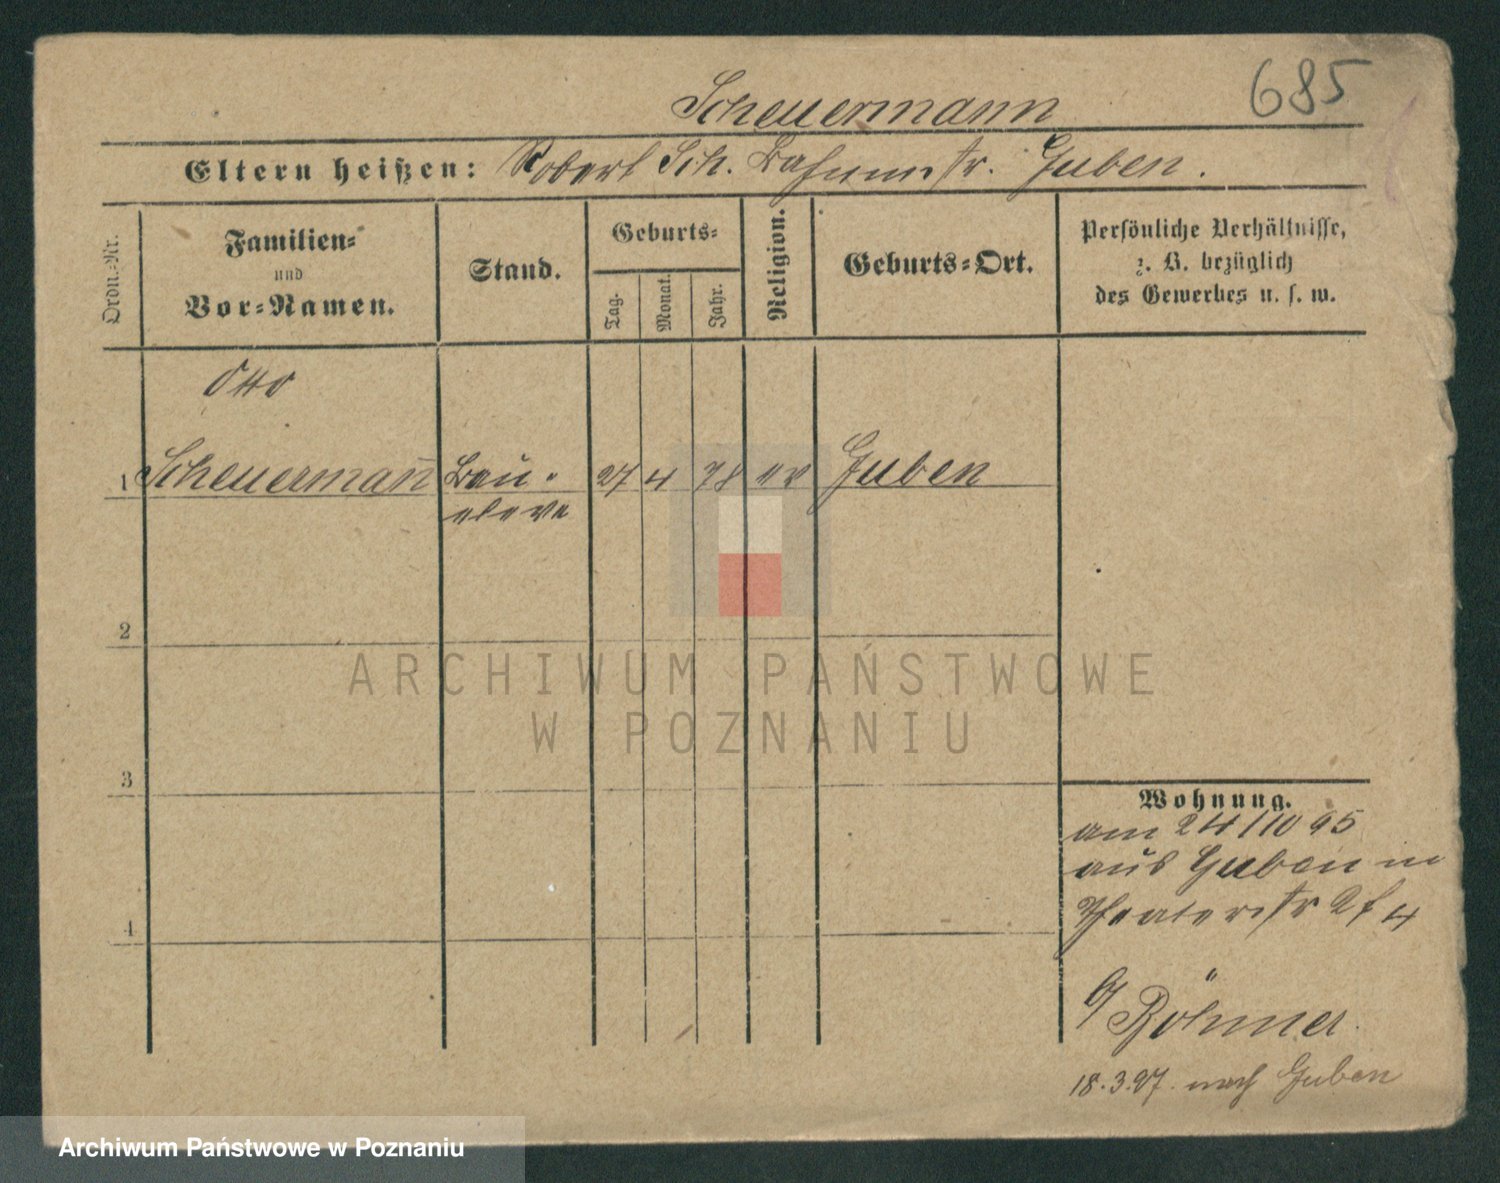 685
Scheuermann
Eltern heißen: Robert Sch. Bahnmstr. Guben.
Ordn.-Nr.
Familien-
und
Vor-Namen.
Stand.
Geburts-
Tag.
Monat.
Jahr.
Religion.
Geburts-Ort.
Persönliche Verhältnisse,
z. B. bezüglich
des Gewerbes u. s. w.
Otto
1 Scheuermañ Bau- 27 4 78 ev Guben
eleve
2
ARCHIWUM PAŃSTWOWE
W POZNANIU
3
4
Wohnung.
am 24/10 95
aus Guben in
Theaterstr 2 4
b/ Böhmer
18.3.97. nach Guben
Archiwum Państwowe w Poznaniu